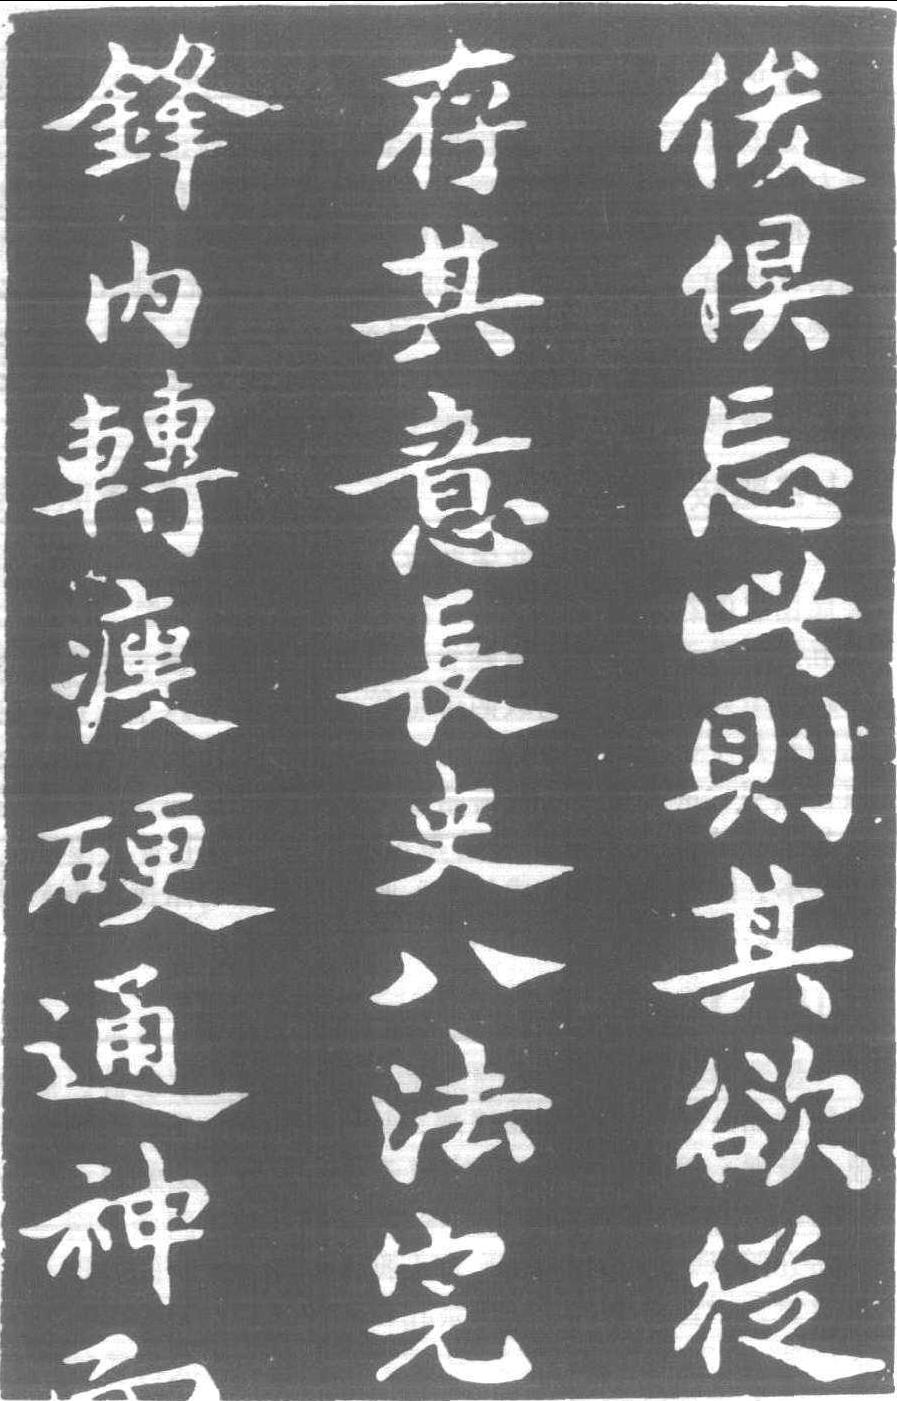 後俱忘此則其欲從
存其意長史八法完
鋒內轉瘦硬通神